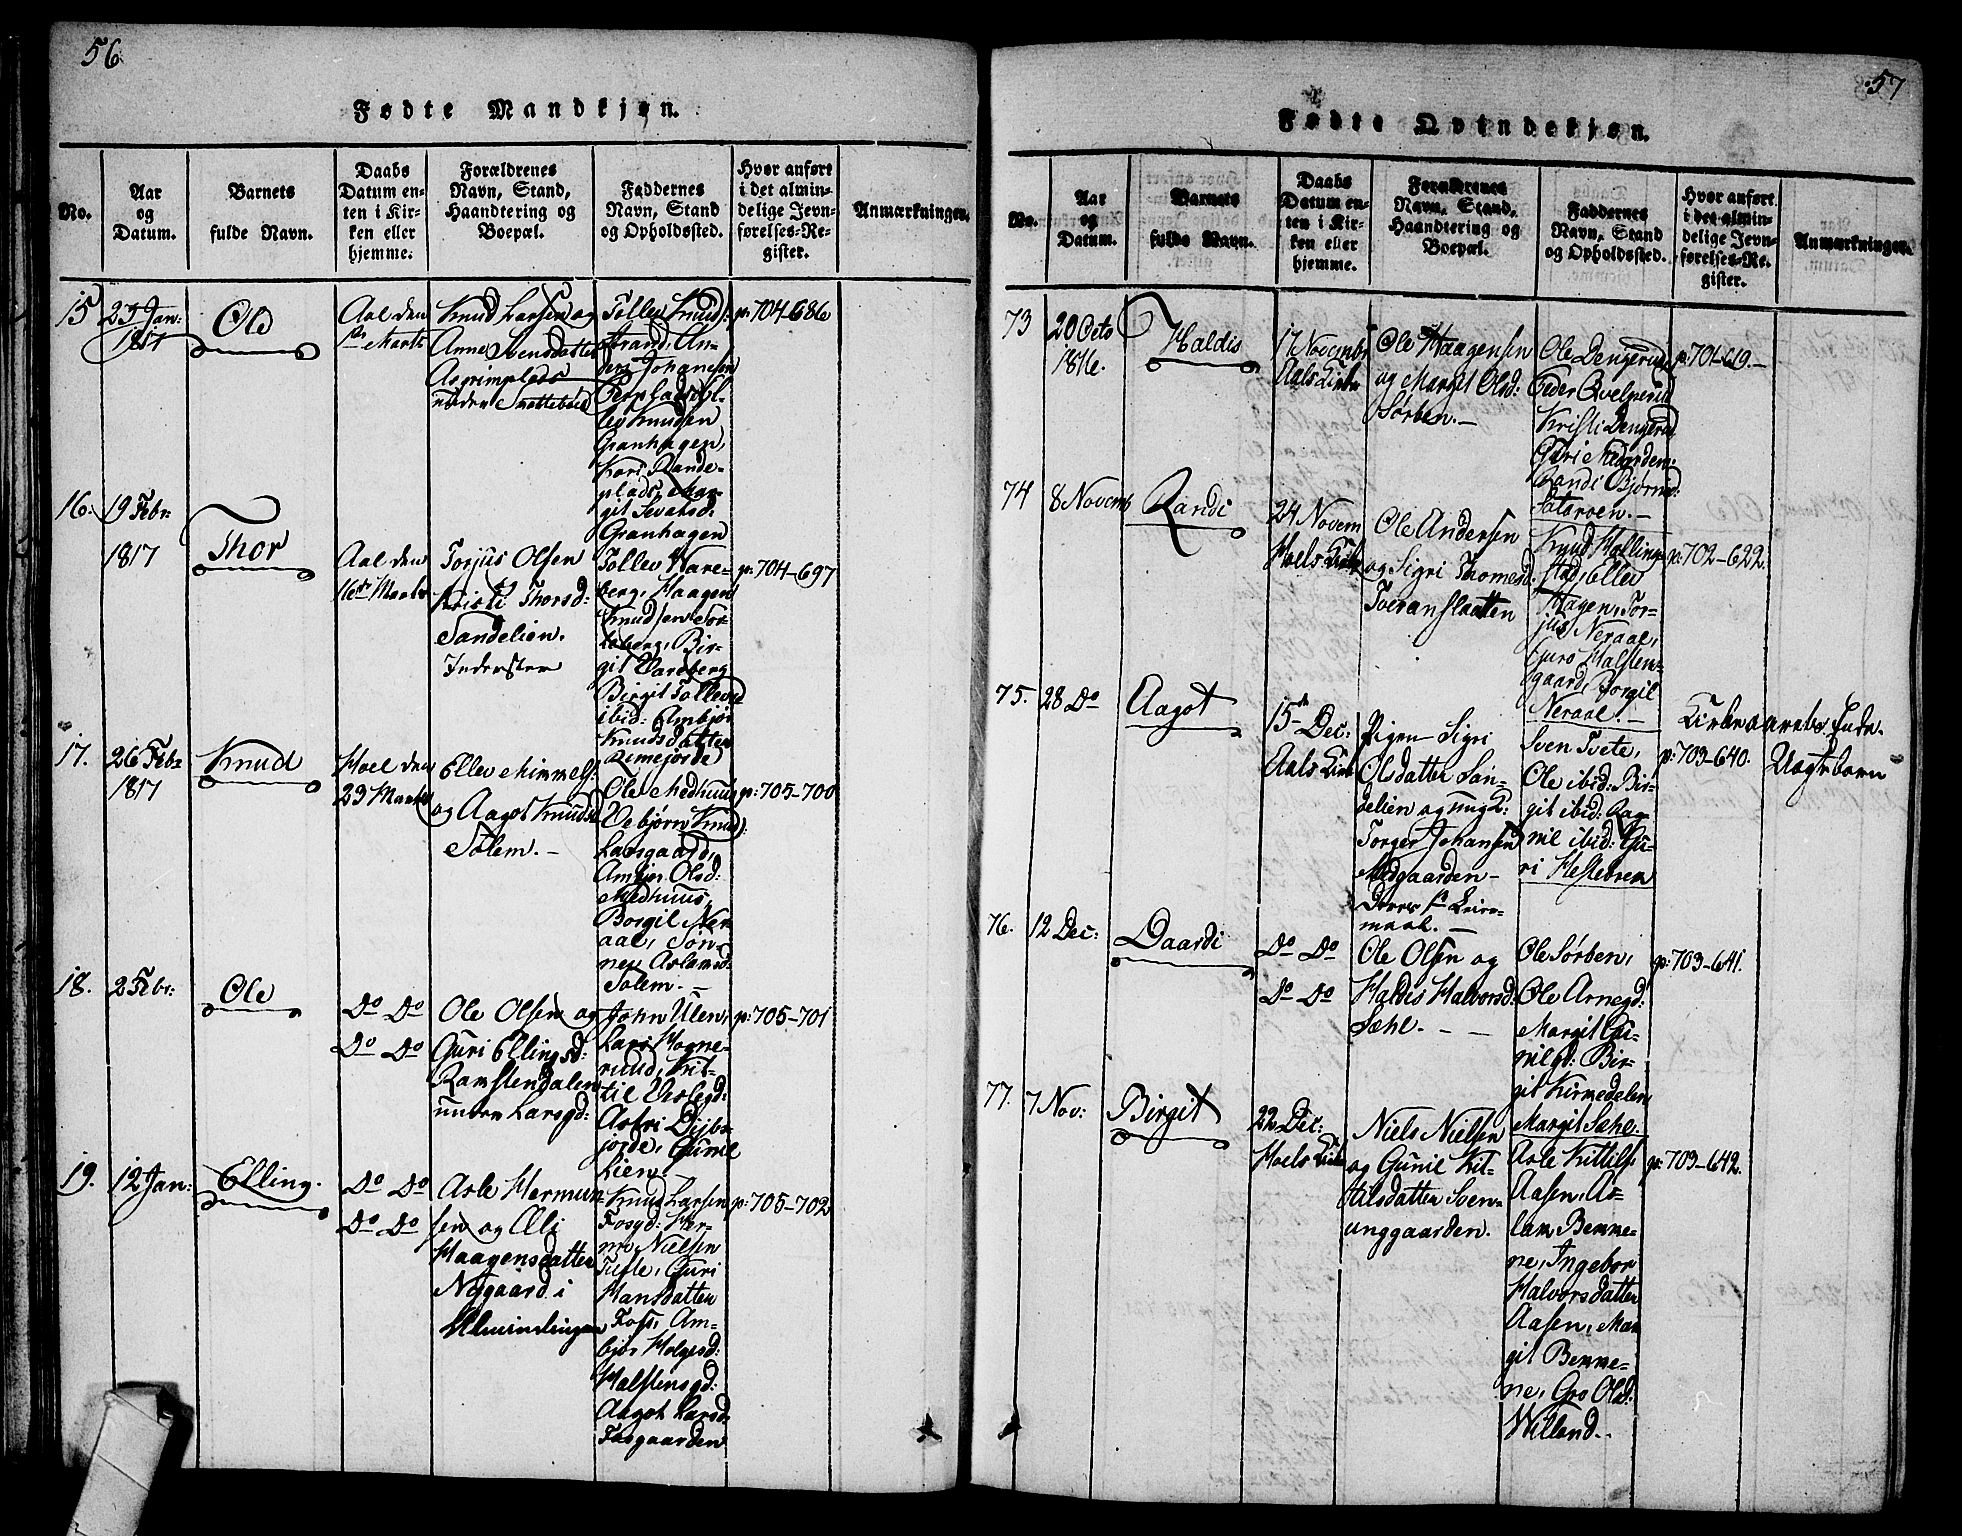 56
Fødte Mandkjøn.
No.
Aar og Datum.
Barnets fulde Navn.
Daabs Datum enten i Kirken eller hjemme.
Forældrenes Navn, Stand, Haandtering og Boepæl.
Faddernes Navn, Stand og Opholdssted.
Hvor anført i det almindelige Jevnførelses-Register.
Anmærkninger.
15
23 Jan:
1817
Old
Aal den
Knud Larsen og
Anne Svensdatter
Tollev Knuds:
Strand, An-
ders Johansen
lev Knudsen
Granhagen,
Kari Rande-
plads, Mar-
git Sevatsd:
Granhagen
p: 704-686
16.
19 Febr:
1817
Thor
Aal den
16de Marts
Torjus Olsen
Kristi Thorsd:
Sandelien.
Tollev Vare-
berg, Haagen
Knudsen Tor-
keberg, Bir-
git Vareberg
Birgit Tollevsd
ibid: Ambjør
Knudsdatter
Rimejorde
p: 704-697
17.
26 Febr
1817
Knud
Hoel den
23 Marts
Ellev Himmels:
og Aagot Knudsd
Solem.-
Ole Medhuus
Vebjørn Knuds:
Larsgaard,
Ambjør Olsd:
Medhuus,
Borgil Ner-
aal, Søn-
nev Aslamsd
Solem.-
p: 705-700
18.
2 Febr:
Ole
Do Do
Do Do
Ole Olsen og
Guri Ellingsd:
Ramstendalen
under Larsgd:
John Ulen,
Lars Hogne-
ruud, Kit-
til Opslegd:
Astri Dijbs-
jorde, Gunil
Lien -
p: 705-701
19.
12 Jan:
Elling.
Do Do
Do Do
Asle Hermun-
sen og Æli
Haagensdatter
Nygaard i
Almindingen
Knud Larsen
Fosgd: Her-
mo Nielsen
Tufte, Guri
Hansdatter
Foss, Am-
bjør Holgesd:
Halstensgd:
Aagot Larsd
Fosgaarden
p: 705-702
57
Fødte Qvindekjøn.
No.
Aar og Datum.
Barnets fulde Navn.
Daabs Datum enten i Kirken eller hjemme.
Forældrenes Navn, Stand, Haandtering og Boepæl.
Faddernes Navn, Stand og Opholdssted.
Hvor anført i det almindelige Jevnførelses-Register.
Anmærkninger.
73
20 Octo
1816.
Haldis
17 Novemb
Aals Kirke
Ole Haagensen
og Margit Olsd:
Sørben.-
Ole Dengerud
Peder Qvelprud
Kristi Dengerud
Guri Medgarden
Randi Bjørnsd:
p: 701-619.-
74
8 Novemb
Randi
24 Novem
Hoels Kirke
Ole Andersen
og Sigri Thomesd:
Tveranslaatten
Knud Halling-
stad, Ellev
Hagen, Tor-
jus Neraal,
Guro Halsten-
gaard, Borgil
Neraal.-
p: 702-622.
75.
28 Do
Aagot
15de Dec:
Aals Kirke
Pigen Sigri
Olsdatter San-
delien og ungk:
Torger Johansen
Medgaarden-
Deres 1ste Leier-
maal. -
Sven Tvete,
Ole ibid: Bir-
git ibid: Rag-
nil ibid: Gu-
ri Hesteøren
p: 703-640.
Uægteborn
76.
12 Dec:
Daardi
Do Do
Do Do
Ole Olsen og
Haldis Halvorsd:
Sæhl. - -
Ole Sørben,
Ole Arnegd:
Margit Gu-
nilgd: Bir-
git Kirmedelen
Margit Sæhl.
p: 703-641.
77.
7 Nov:
Birgit
22 Dec:
Hoels Kirke
Niels Nielsen
og Gunil Kit-
tilsdatter Sven-
unggaarden.
Asle Kittils:
Aasen, As-
lam Bemme-
ne, Ingebor
Halvorsdatter
Aasen, Mar
git Bemme-
ne, Gro Olsd:
Villand..
p: 703-642.